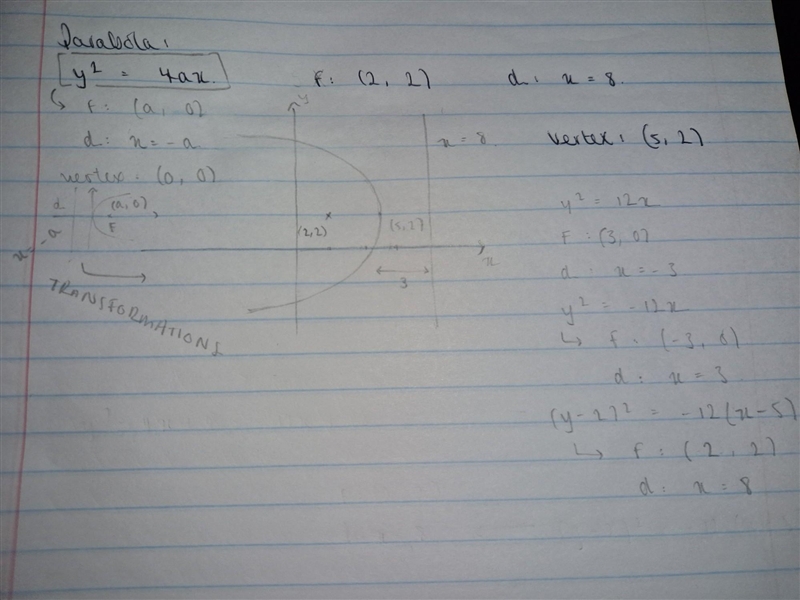 Parabola:
y² = 4ax. F: (2, 2) d: x = 8.
↳ F: (a, 0)
d: x = -a
vertex: (0, 0)
d
(a, 0)
F
x = -a
TRANSFORMATIONS
y
x = 8
(2,2)
(5,2)
x
3
vertex: (5, 2)
y² = 12x
F: (3, 0)
d: x = -3
y² = -12x
↳ F: (-3, 0)
d: x = 3
(y-2)² = -12(x-5)
↳ F: (2, 2)
d: x = 8